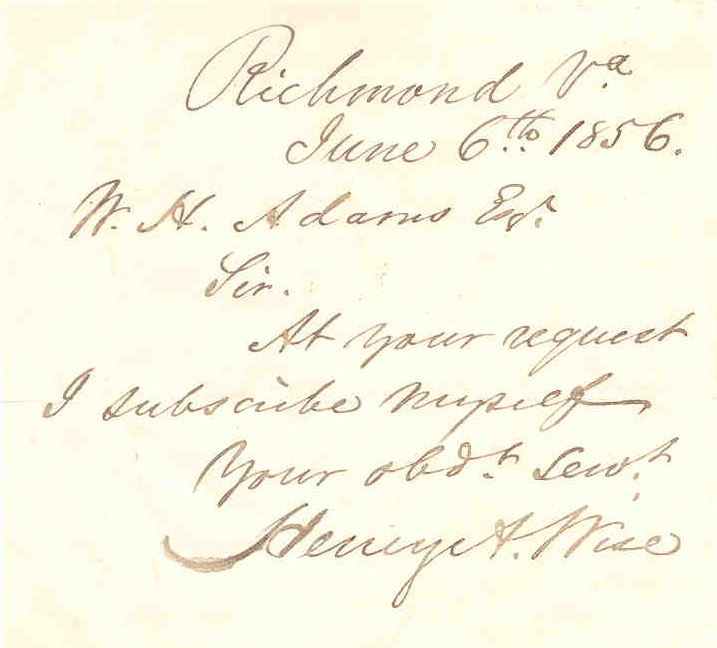 Richmond Va.
June 6th. 1856.
W. H. Adams Esqr.
Sir.
At your request
I subscribe myself
Your obdt. Servt.
Henry A. Wise